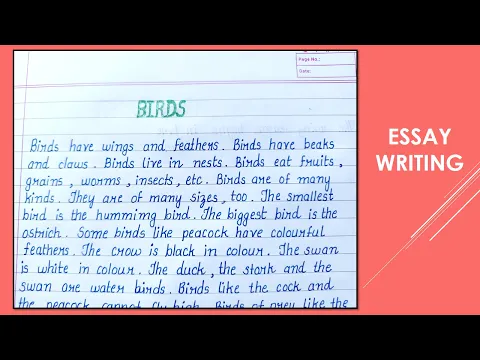 Page No.:
Date:
BIRDS
Birds have wings and feathers. Birds have beaks
and claws. Birds live in nests. Birds eat fruits,
grains, worms, insects, etc. Birds are of many
kinds. They are of many sizes, too. The smallest
bird is the humming bird. The biggest bird is the
ostrich. Some birds like peacock have colourful
feathers. The crow is black in colour. The swan
is white in colour. The duck, the stork and the
swan are water birds. Birds like the cock and
the peacock cannot fly high. Birds of prey like the
ESSAY
WRITING